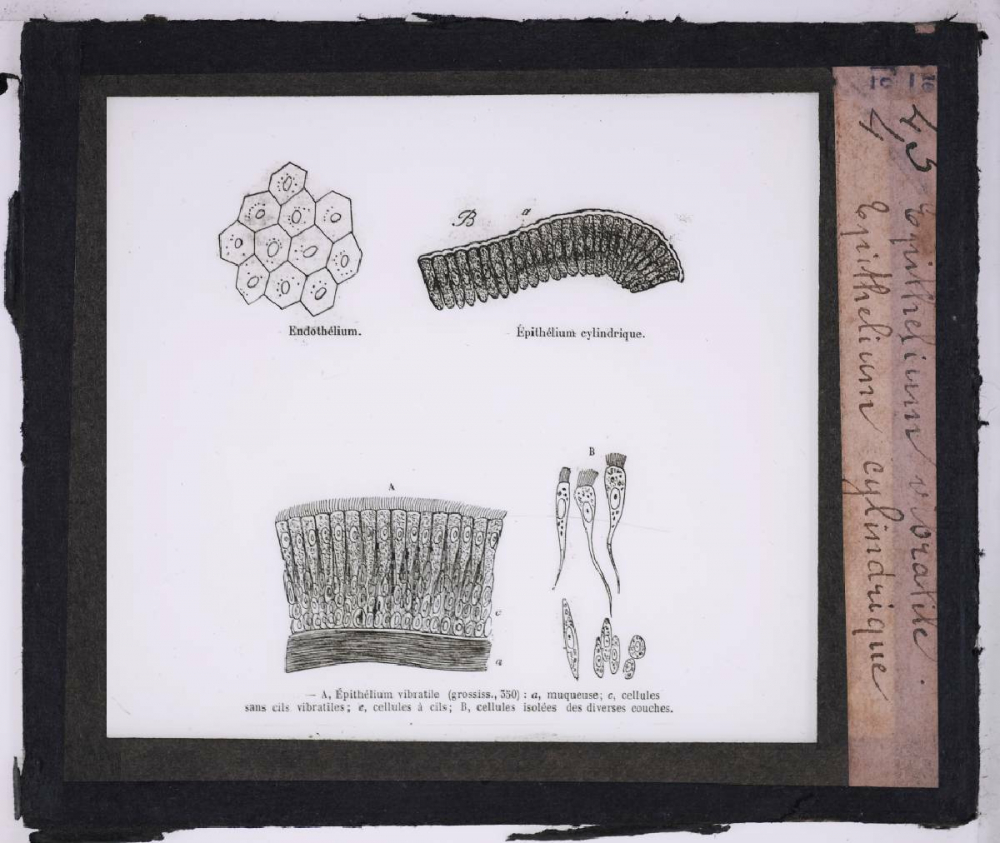 B a
Endothélium.
Épithélium cylindrique.
A
B
c
a
— A, Épithélium vibratile (grossiss., 350) : a, muqueuse; c, cellules
sans cils vibratiles; e, cellules à cils; B, cellules isolées des diverses couches.
43 Epithelium vibratile.
4 Epithelium cylindrique